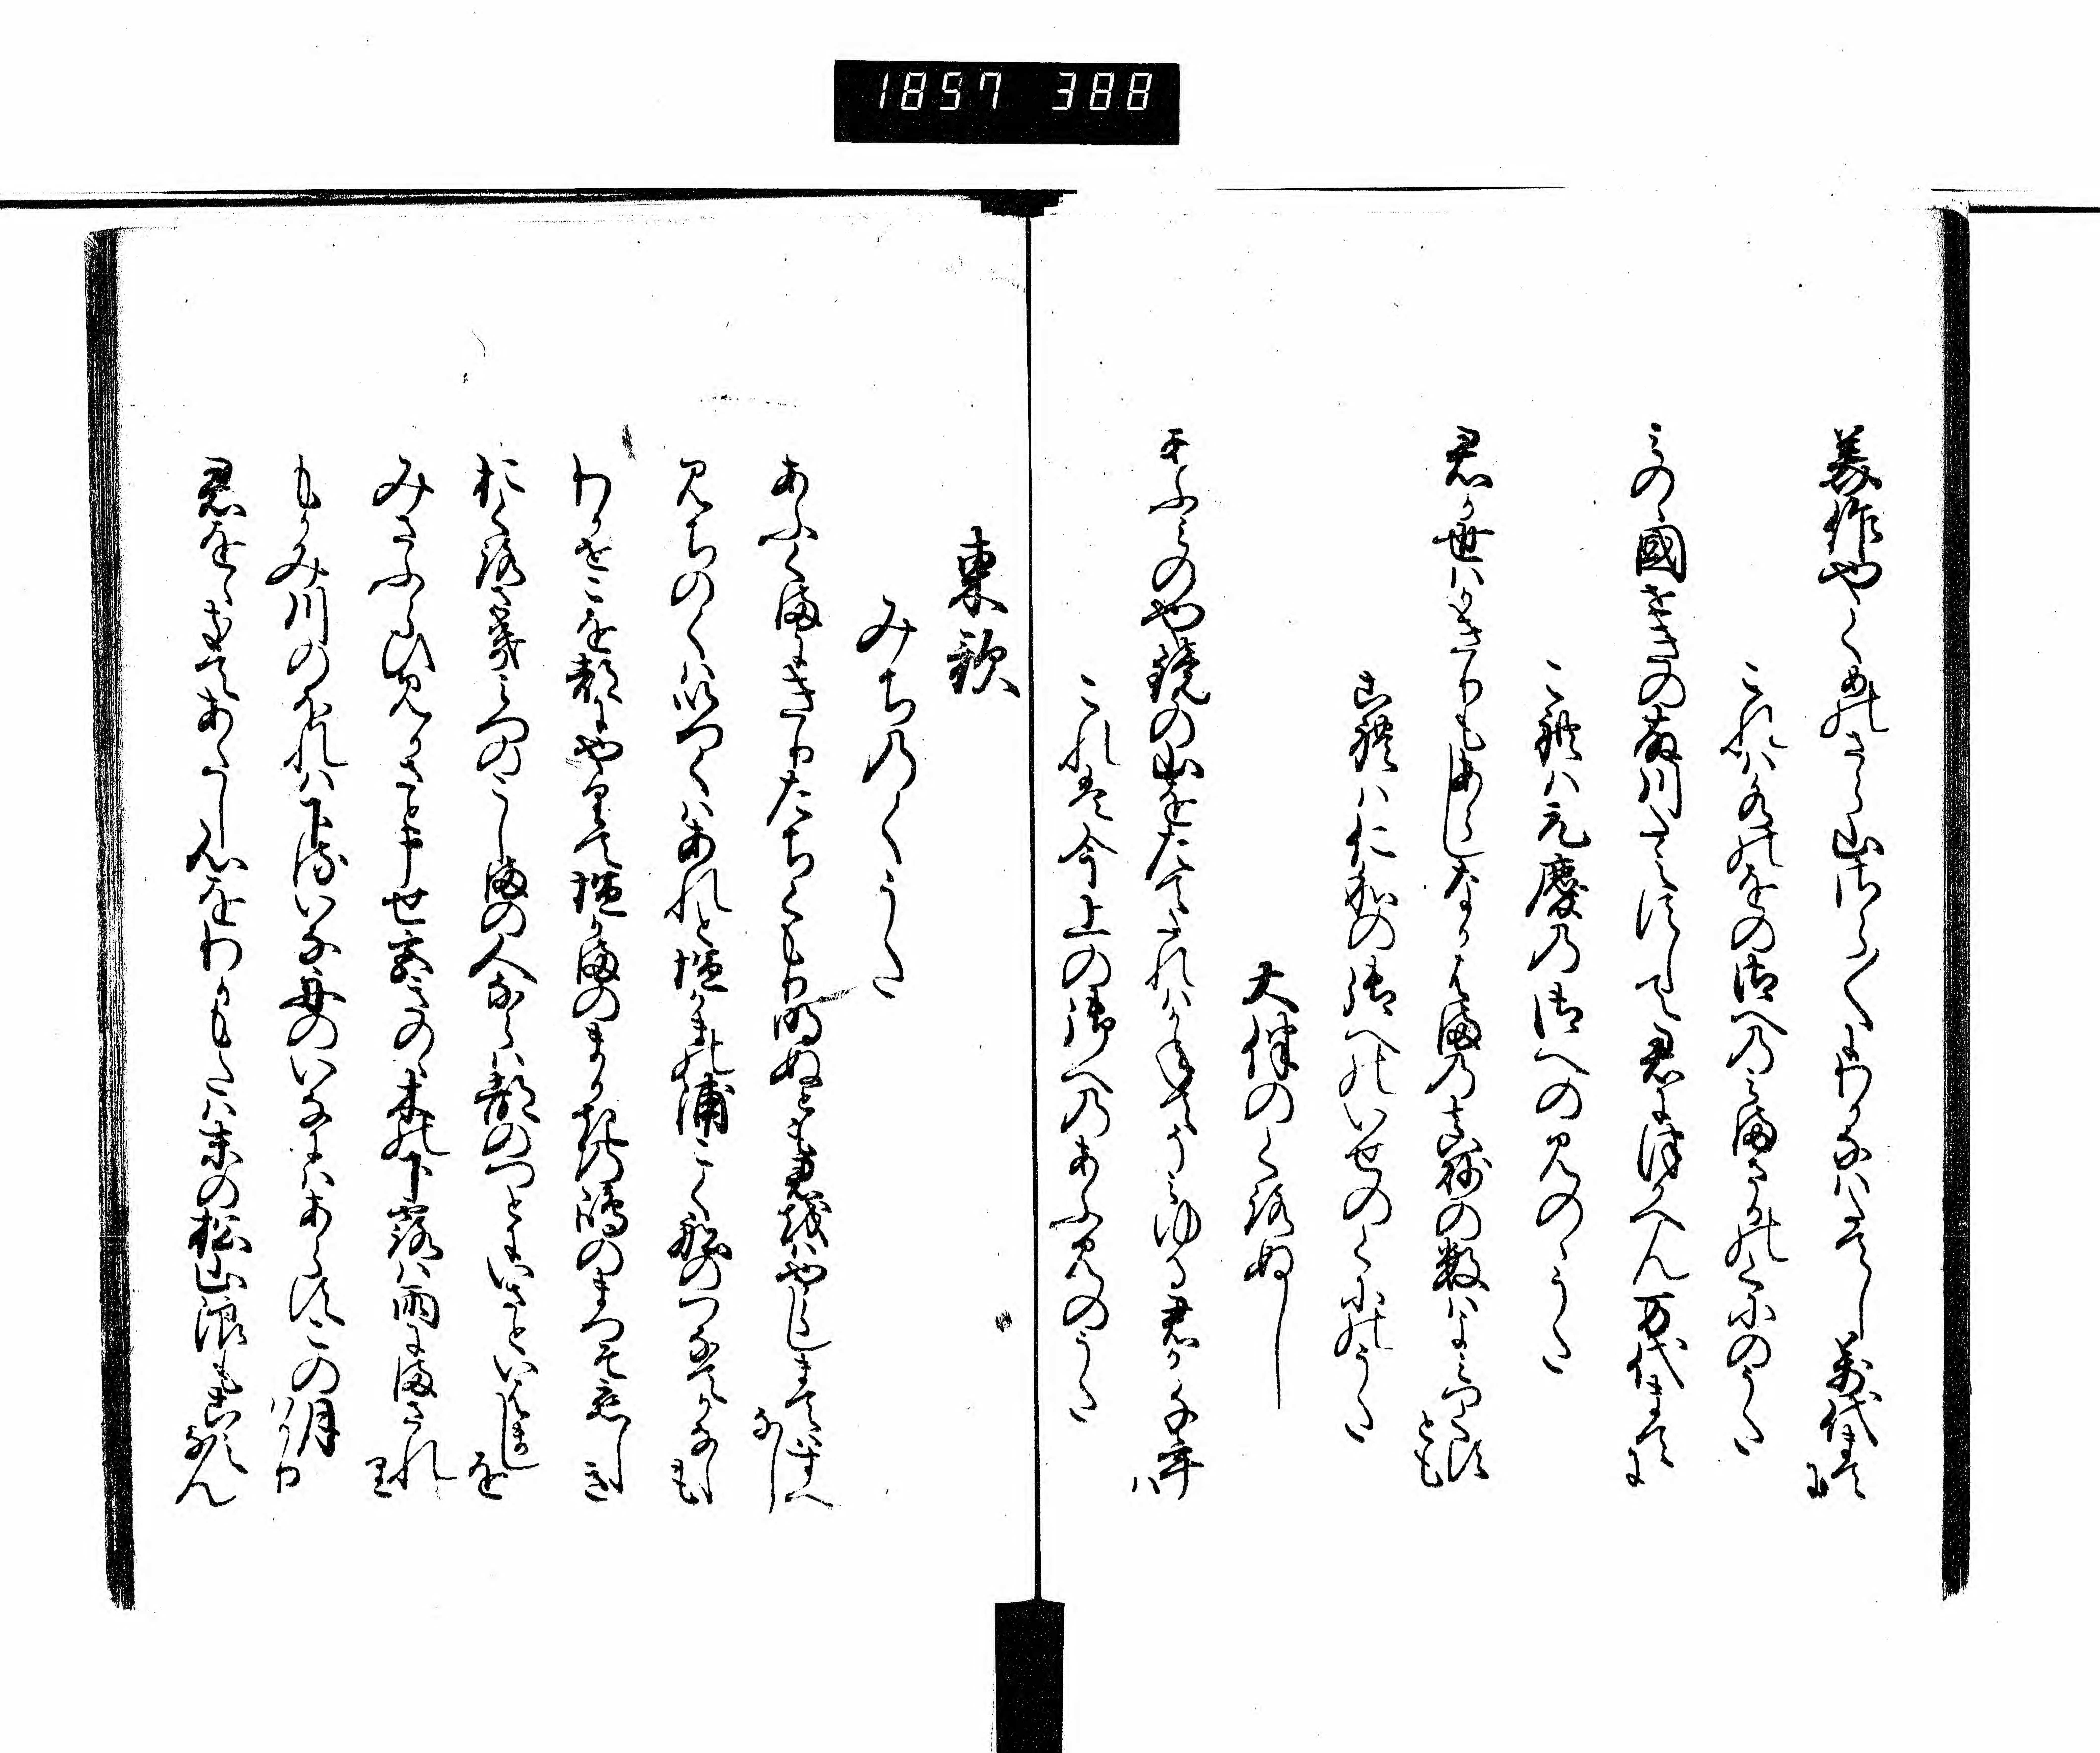 1857 388
美作やくめのさら山さら〱にわかなはたてし万代まてに
これは水のをの御へのみまさかのくにのうた
みのゝ國せきの藤川たえすして君につかへん万代まてに
これは元慶の御へのみのゝうた
君か世はかきりもあらしなかはまの真砂の数はよみつくすとも
これは仁和の御へのいせのくにのうた
大伴のくろぬし
あふみのや鏡の山をたてたれはかねてそみゆる君か千年は
これは今上の御へのあふみのうた
東歌
みちのくうた
あふくまにきりたちくもり明ぬとも君をはやらしまてはすへなし
みちのくはいつくはあれと塩かまの浦こく舟のつなてかなしも
わかせこを都にやりて塩かまのまかきの嶋のまつそ恋しき
おくろさきみつのこしまの人ならは都のつとにいさといはましを
みさふらひみかさと申せ宮きのゝ木の下露は雨にまされり
もかみ川のほれは下るいな舟のいなにはあらすこの月はかり
君をゝきてあたし心をわかもたは末の松山浪もこえなん